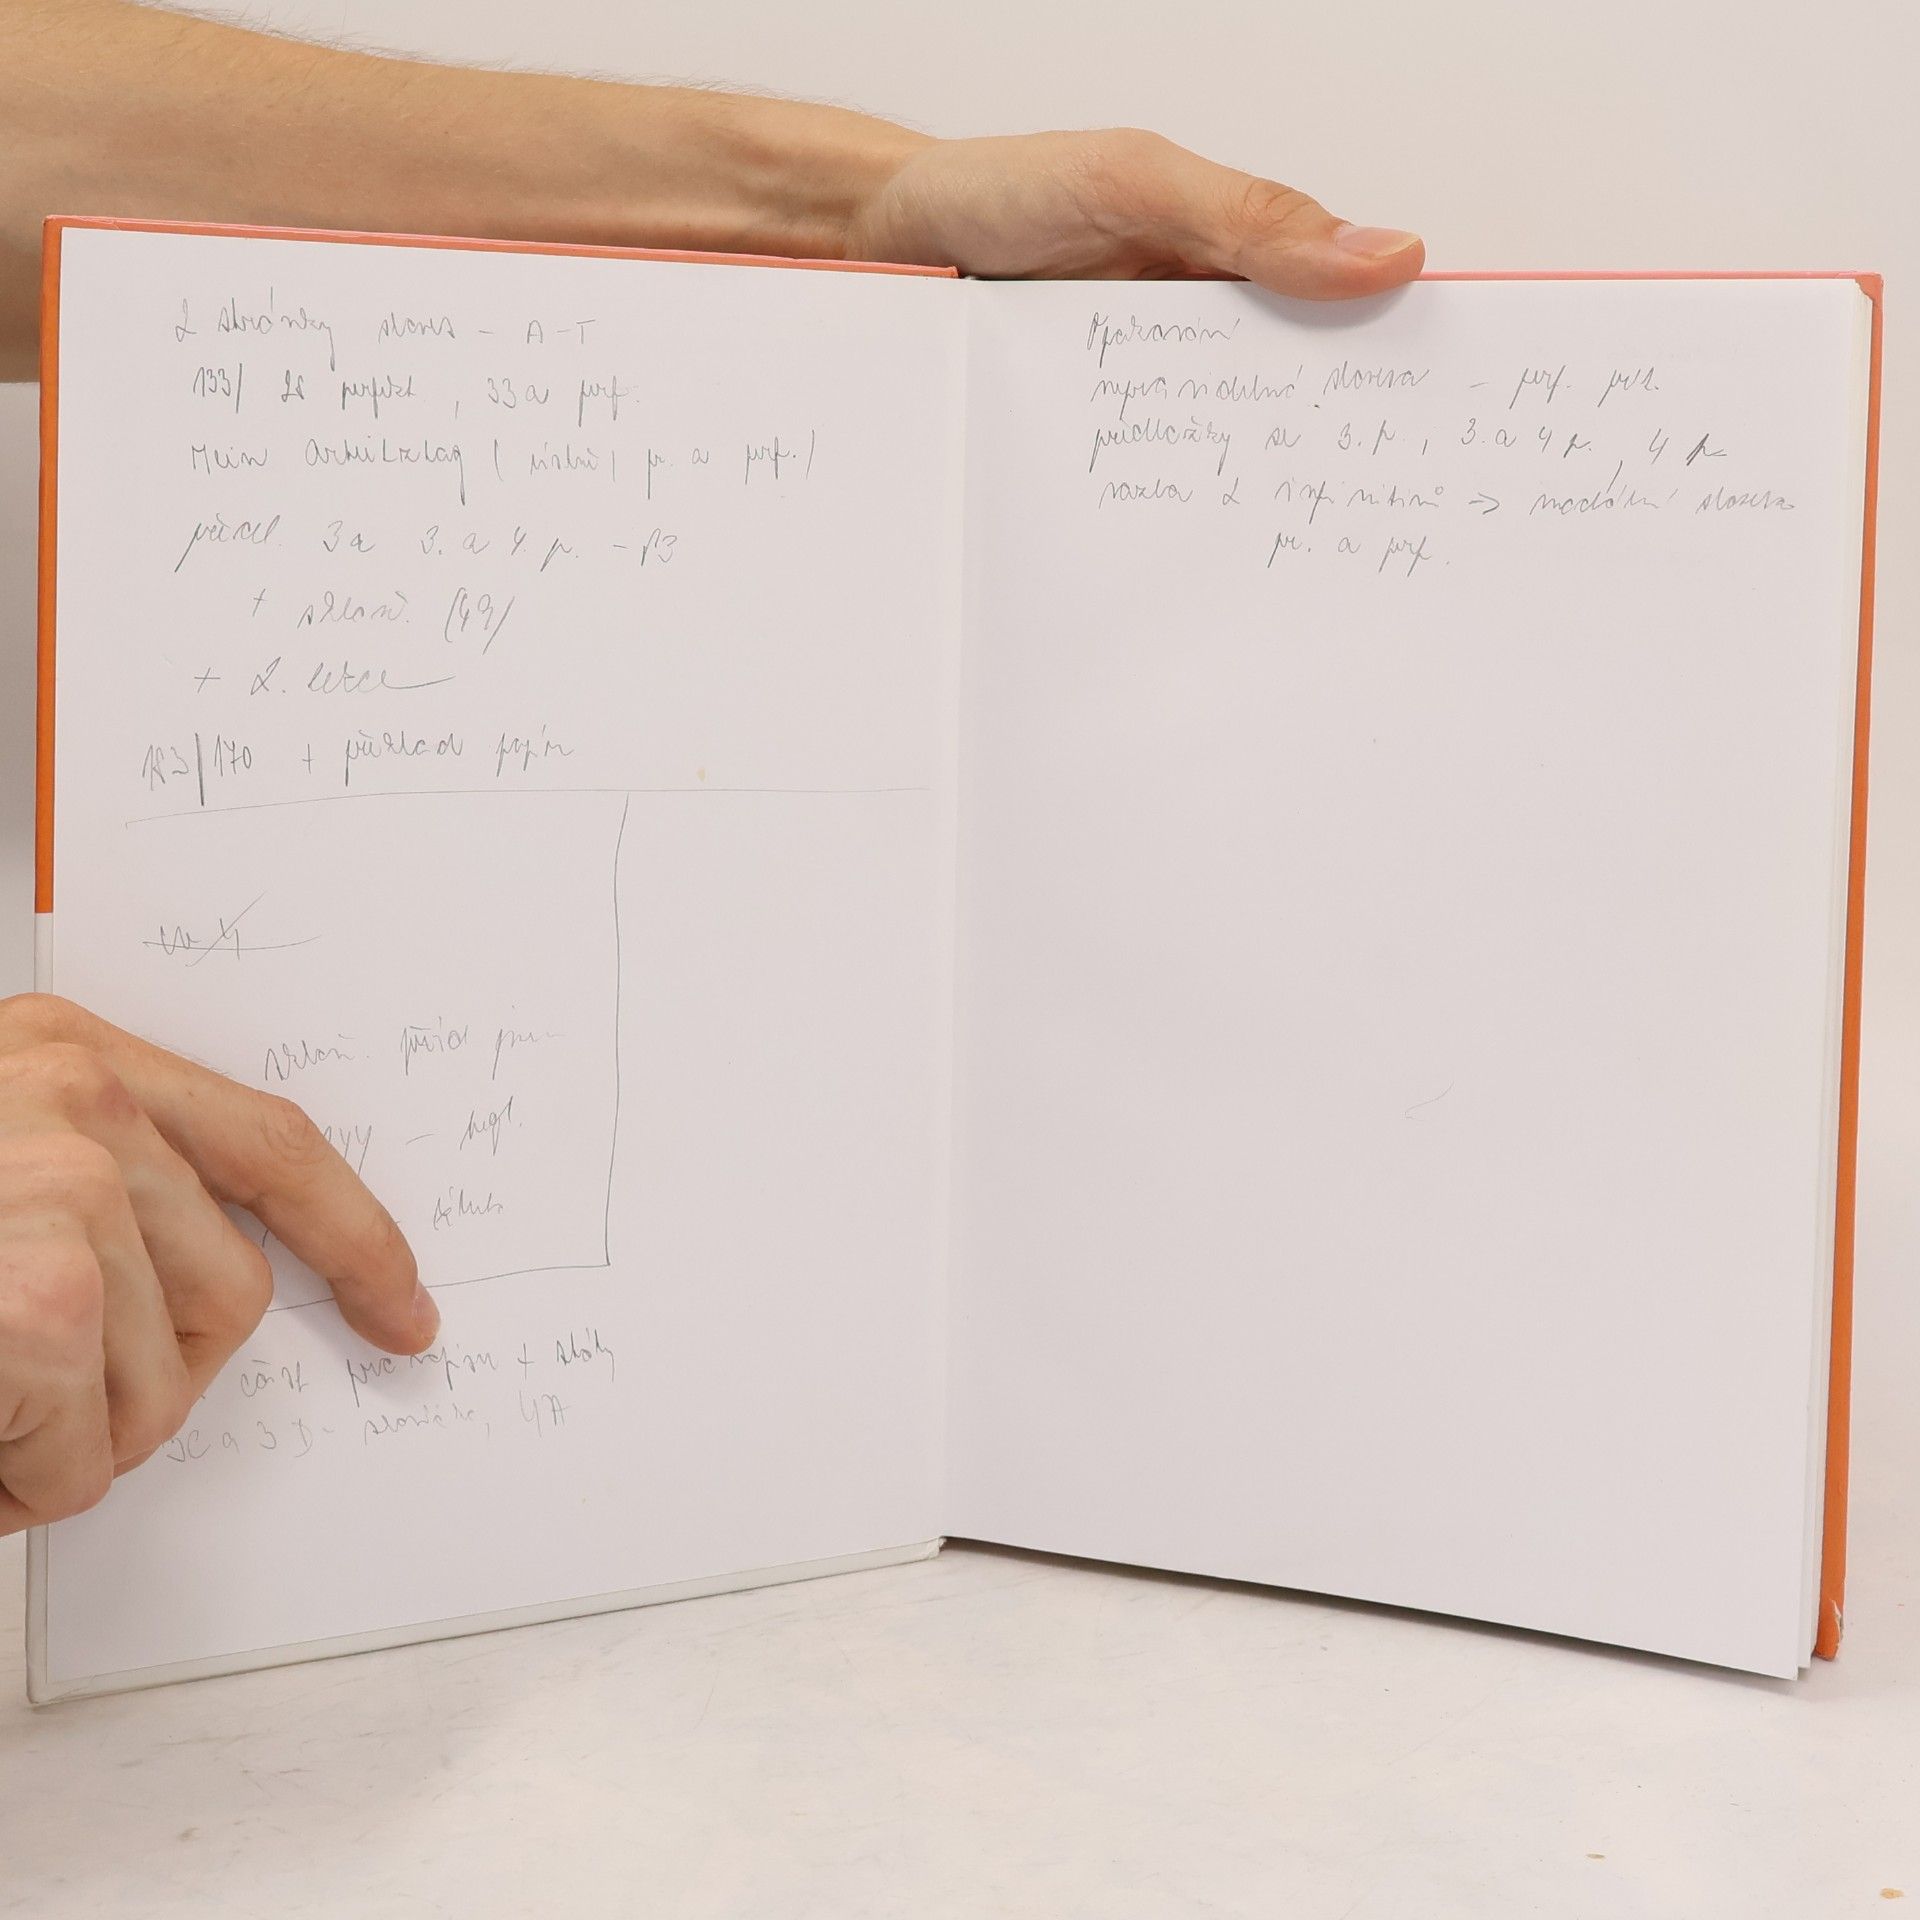 2 stránky sloves - A-T
133/ 28 perfekt, 33a perf.
Mein Arbeitstag (ústně) pr. a perf.)
před. 3a 3. a 4. p. - 
+ skloň. (43/
+ 2. lekce
183/170 + překlad papír
cv 4
skloň. příd jmen
část pracovní + 
3C a 3D - slovíčka, 4A
Opakování
nepravidelná slovesa - perf. 
předložky se 3. p., 3. a 4 p., 4 p
vazba 2 infinitivů => modální slovesa
pr. a perf.